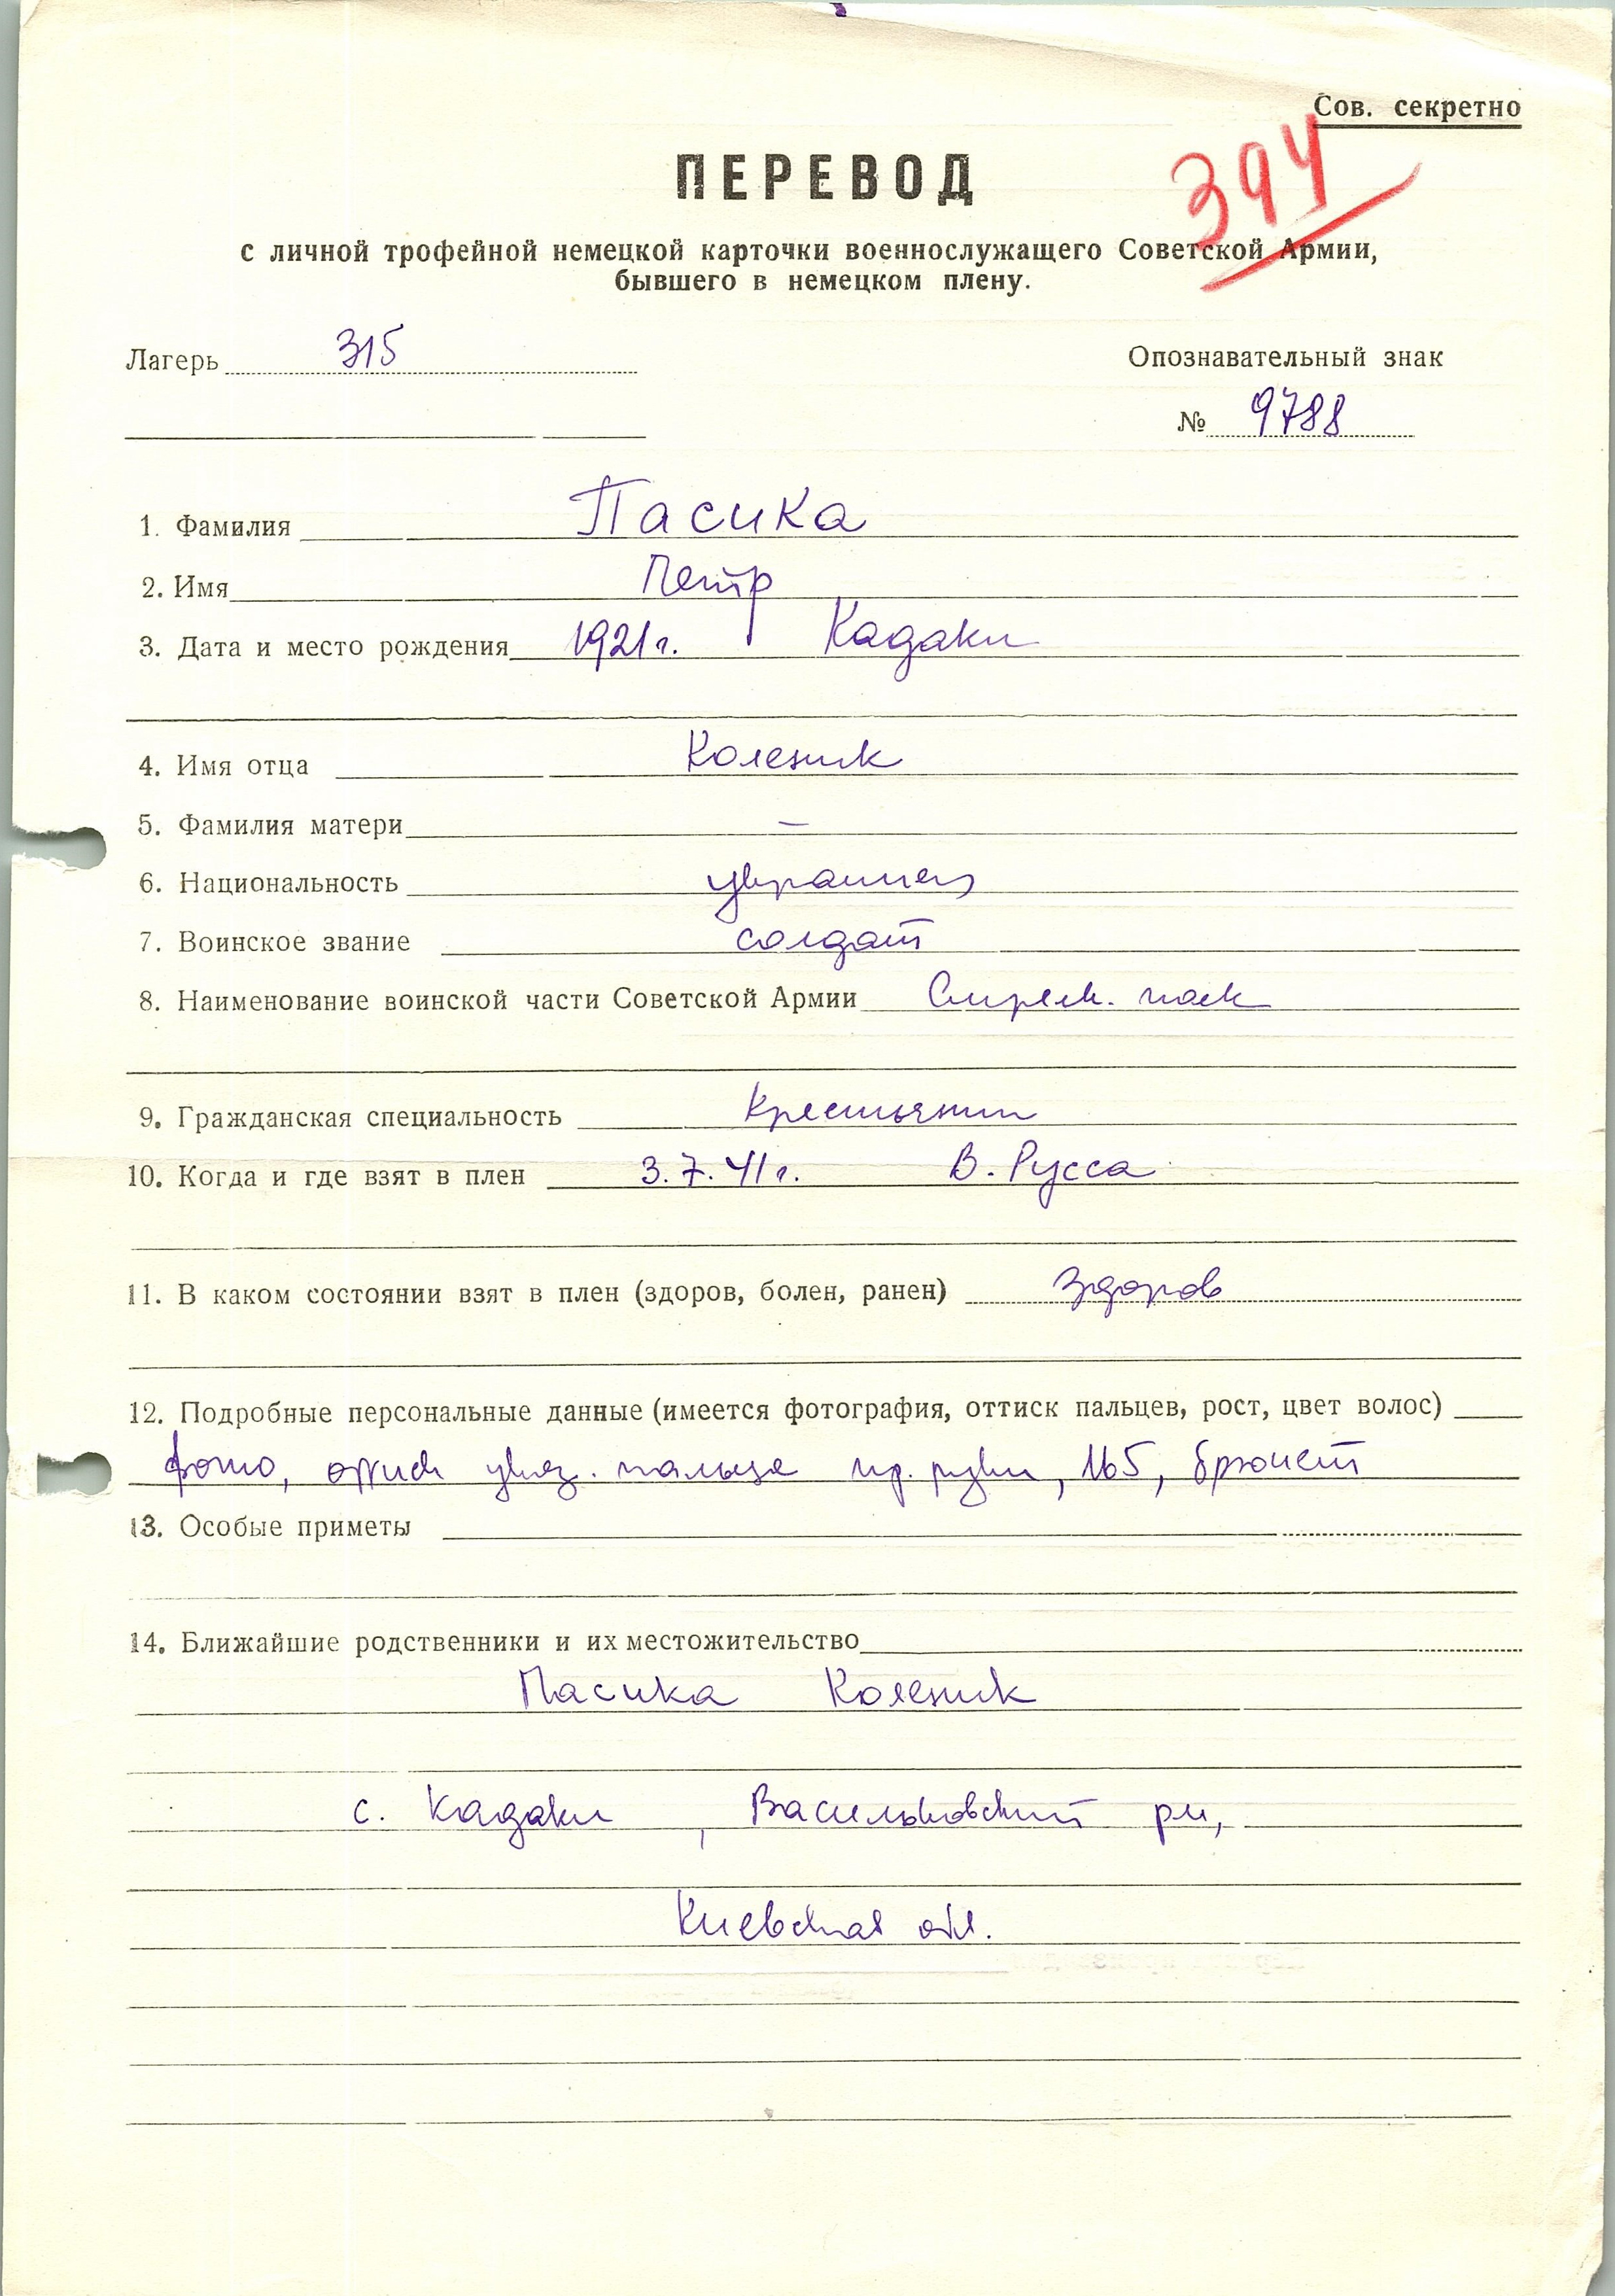 Сов. секретно
394
ПЕРЕВОД
с личной трофейной немецкой карточки военнослужащего Советской Армии,
бывшего в немецком плену.
Лагерь 315 Опознавательный знак
№ 9788
1. Фамилия Пасика
2. Имя Петр
3. Дата и место рождения 1921 г. Кадаки
4. Имя отца Колезник
5. Фамилия матери —
6. Национальность украинец
7. Воинское звание солдат
8. Наименование воинской части Советской Армии Стрелк. полк
9. Гражданская специальность Крестьянин
10. Когда и где взят в плен 3.7.41 г. В. Русса
11. В каком состоянии взят в плен (здоров, болен, ранен) здоров
12. Подробные персональные данные (имеется фотография, оттиск пальцев, рост, цвет волос)
фото, оттиск указ. пальца пр. руки, 165, брюнет
13. Особые приметы
14. Ближайшие родственники и их местожительство
Пасика
с. Кадаки, Васильковский
Киевская обл.